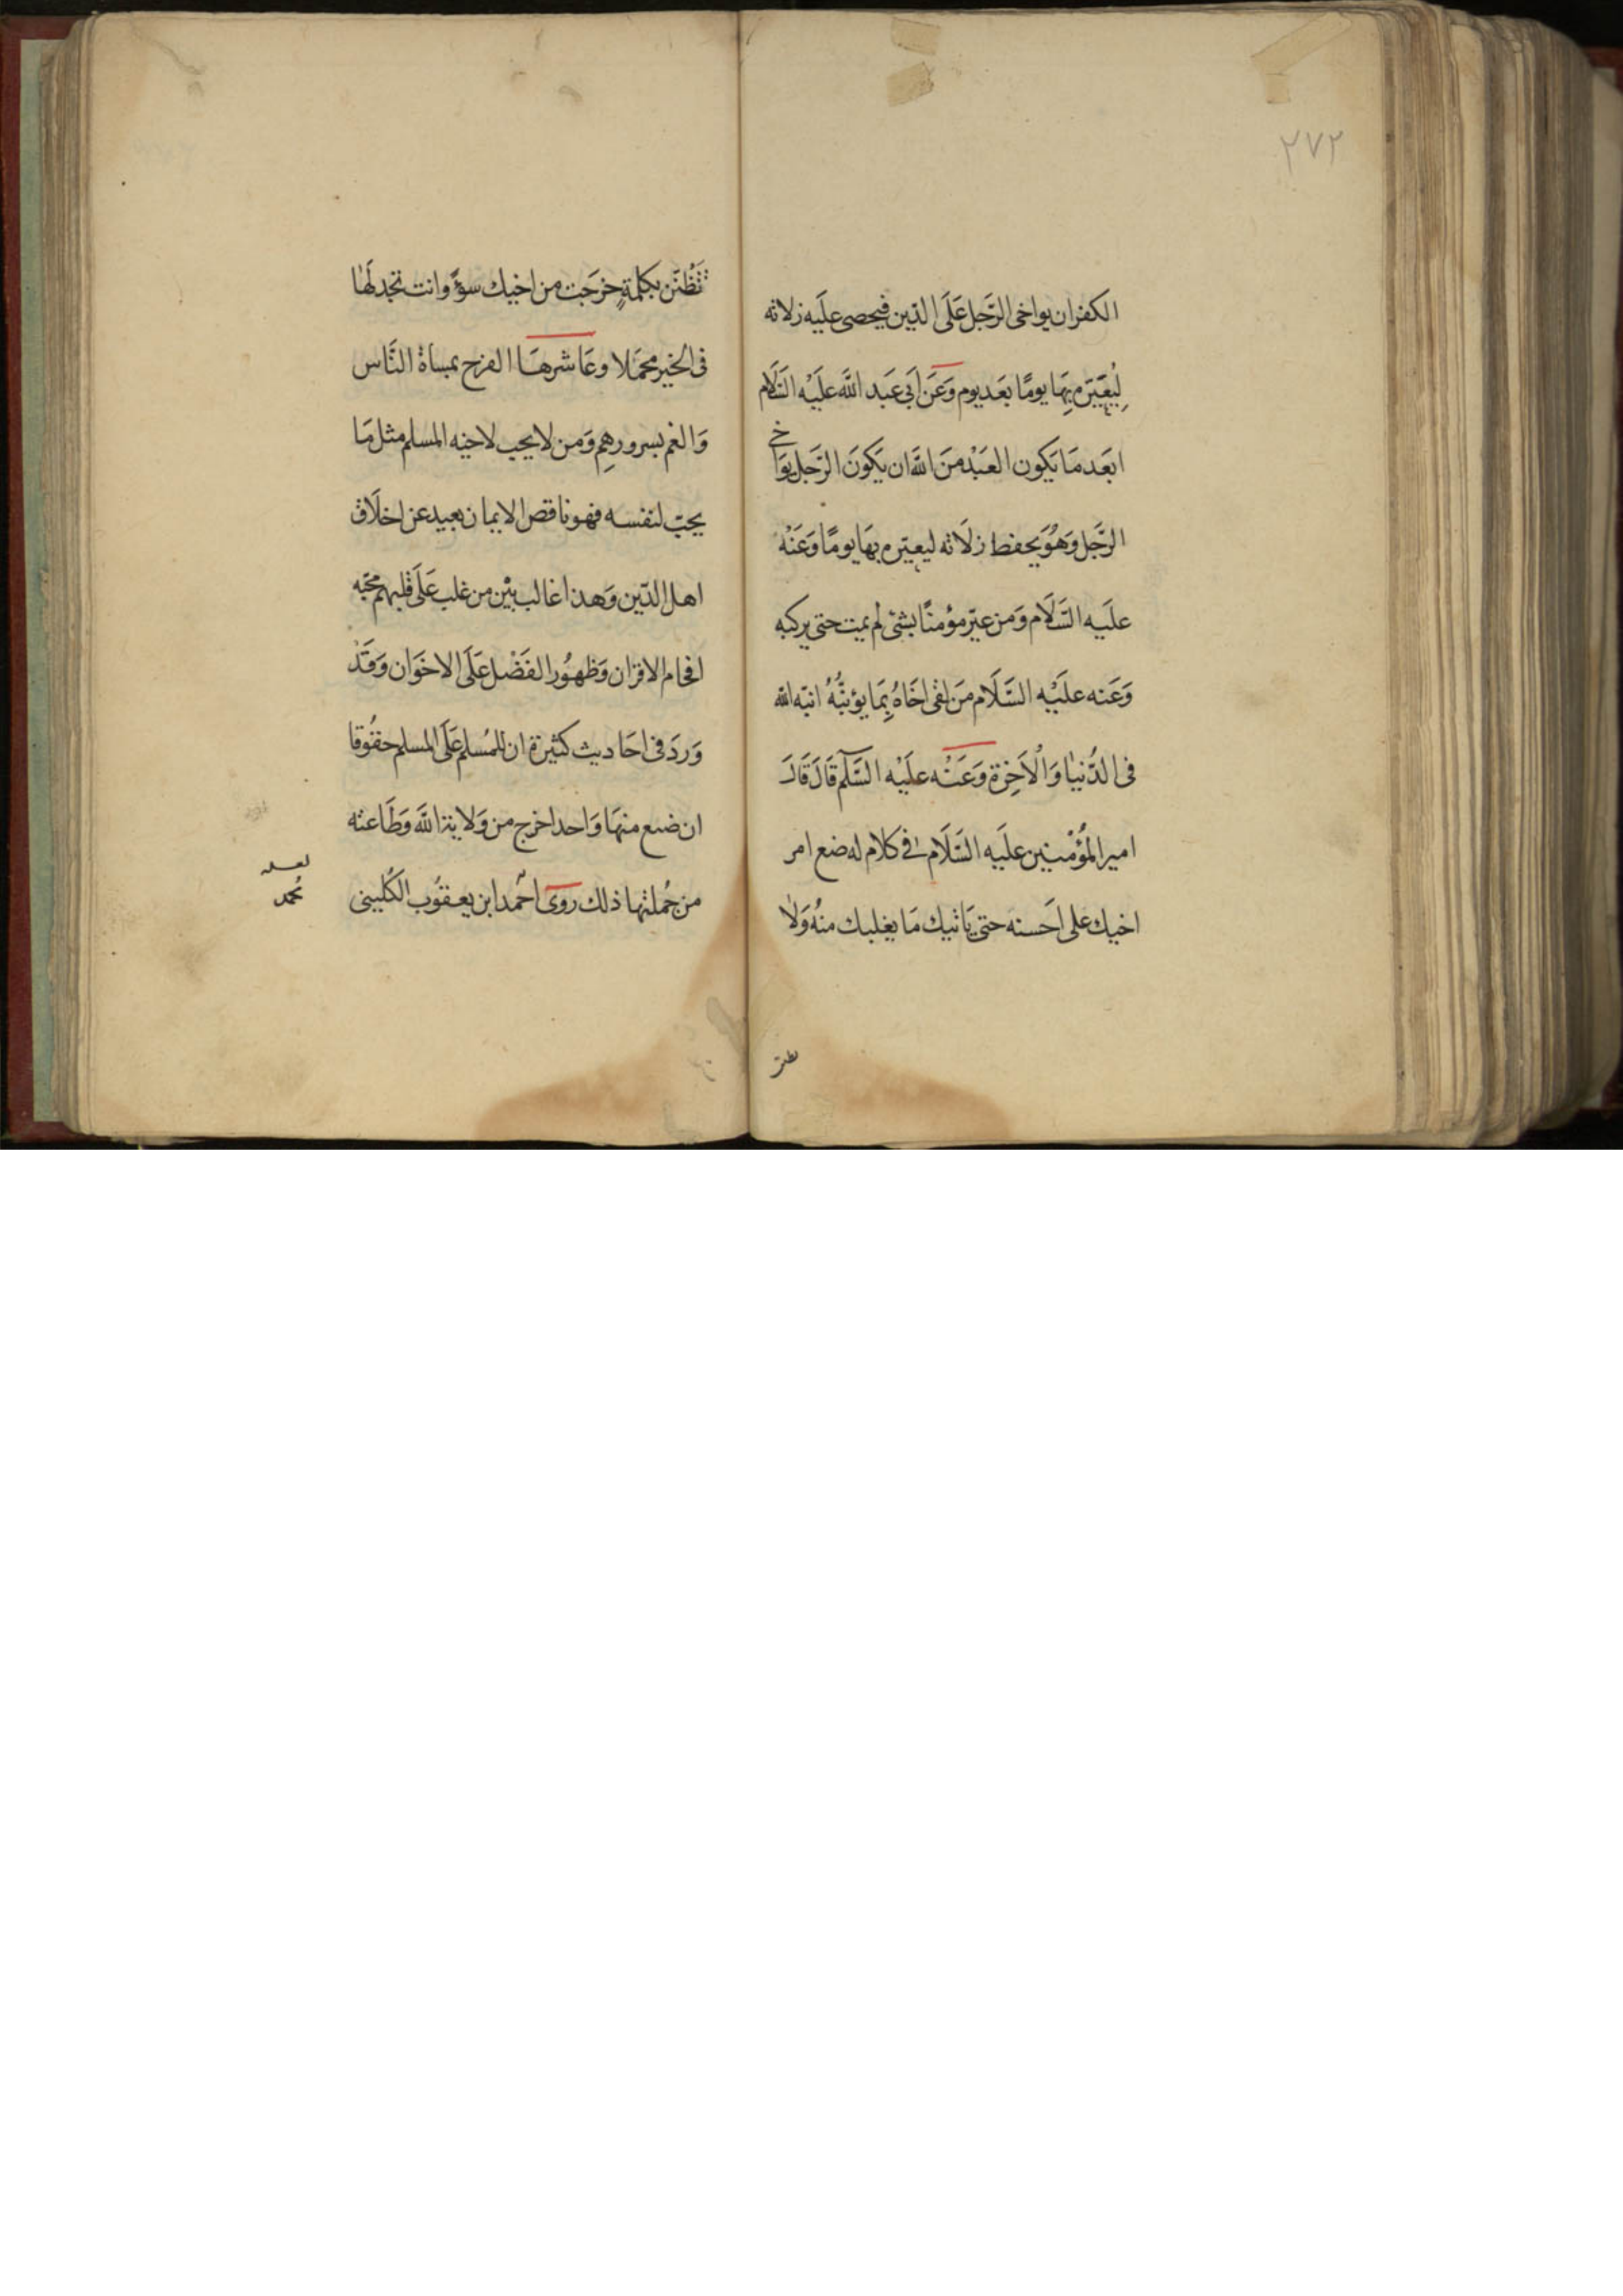 ٢٧٢
الكفران يواخى الرَّجل عَلَى الدّين فيحصى علَيه زلاته
لِيُعَيّره بِهَا يومًا بعَد يوم وَعَن اَبى عَبد اللَّه علَيْه السَّلَام
ابعَد مَا يَكون العَبْد مَن اللَّه ان يَكونَ الرَّجل يوَاخى
الرَّجل وَهُوَ يحفظ زلَاته ليعيّره بهَا يومًا وَعَنْه
علَيه السَّلَام وَمن عيّر مؤمنًا بشئ لم يمت حتى يركبه
وَعَنه علَيْه السَّلَام مَن لقى اخَاهُ بِمَا يؤنبُّهُ انبّه اللّه
فى الدُّنيٰا وَالْاَخِرَة وَعَنْه علَيْه السَّلم قَالَ قَالَ
امير المُؤْمنين علَيه السَّلَام فى كلام له ضع امر
اخيك على اَحسنه حتى يَاتيك مَا يغلبك منُه وَلا
تَظُنّن بكلمةٍ خرَجَت من اخيك سوءً وانت تجد لَهٰا
فى الخير محمَلا وعَاشرهَا الفرح بمسأة النَّاس
وَالغم بسرورهم وَمن لا يحب لاخيه المسلم مثل مَا
يحبّ لنفسه فهو ناقص الايمان بعيد عن اخلَاق
اهل الدّين وَهذا غالب بيْن من غلب عَلَى قلبهم محبّه
افحام الاقران وَظهُور الفَضْل عَلَى الاخوَان وَقَدْ
وَردَ فى احَاديث كثيرة ان للمُسلم عَلَى المسلم حقُوقا
ان ضيع منهَا وَاحد اخرج من وَلاية اللَّه وَطَاعته
من جُملتها ذلك روى احمَد ابن يعقوُب الكُلينى
لعله
مُحمد